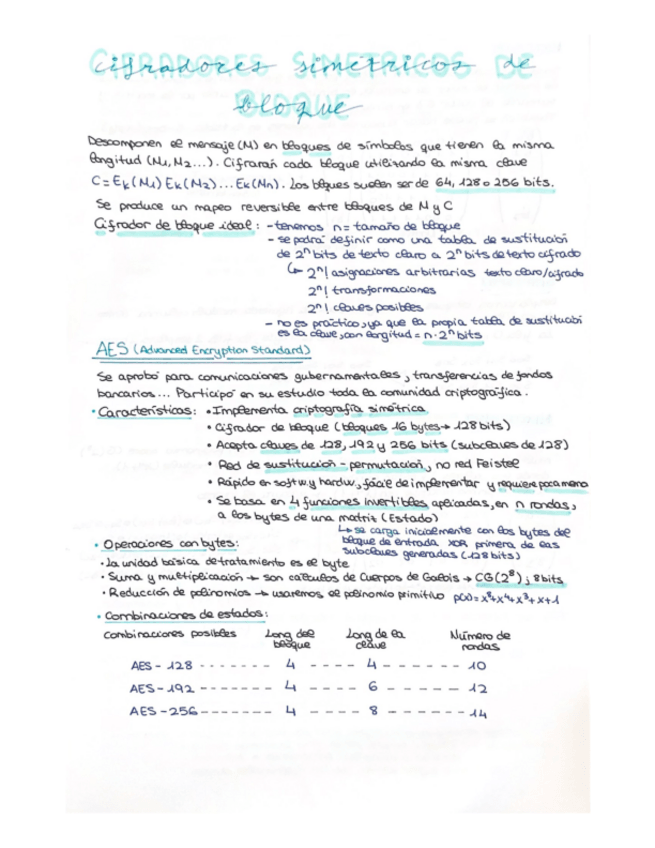 Cifradores simétricos de
bloque
Descomponen el mensaje (M) en bloques de símbolos que tienen la misma
longitud (M1, M2...). Cifrarán cada bloque utilizando la misma clave
C = Ek(M1) Ek(M2)... Ek(Mn). Los bloques suelen ser de 64, 128 o 256 bits.
Se produce un mapeo reversible entre bloques de M y C
Cifrador de bloque ideal: - tenemos n = tamaño de bloque
- se podrá definir como una tabla de sustitución
de 2ⁿ bits de texto claro a 2ⁿ bits de texto cifrado
↳ 2ⁿ! asignaciones arbitrarias texto claro/cifrado
2ⁿ! transformaciones
2ⁿ! claves posibles
- no es práctico, ya que la propia tabla de sustitución
es la clave, con longitud = n·2ⁿ bits
AES (Advanced Encryption Standard)
Se aprobó para comunicaciones gubernamentales, transferencias de fondos
bancarios... Participó en su estudio toda la comunidad criptográfica.
• Características: • Implementa criptografía simétrica
• Cifrador de bloque (bloques 16 bytes → 128 bits)
• Acepta claves de 128, 192 y 256 bits (subclaves de 128)
• Red de sustitución - permutación, no red Feistel
• Rápido en softw y hardw, fácil de implementar y requiere poca memo
• Se basa en 4 funciones invertibles, aplicadas, en n rondas,
a los bytes de una matriz (Estado)
↳ se carga inicialmente con los bytes del
bloque de entrada XOR primera de las
subclaves generadas (128 bits)
• Operaciones con bytes:
• La unidad básica de tratamiento es el byte
• Suma y multiplicación → son cálculos de Cuerpos de Galois → CG(2⁸); 8 bits
• Reducción de polinomios → usaremos el polinomio primitivo p(x) = x⁸+x⁴+x³+x+1
• Combinaciones de estados:
Combinaciones posibles Long del bloque Long de la clave Número de rondas
AES - 128 ------- 4 ---- 4 ------ 10
AES - 192 ------- 4 ---- 6 ------ 12
AES - 256 ------- 4 ---- 8 ------ 14